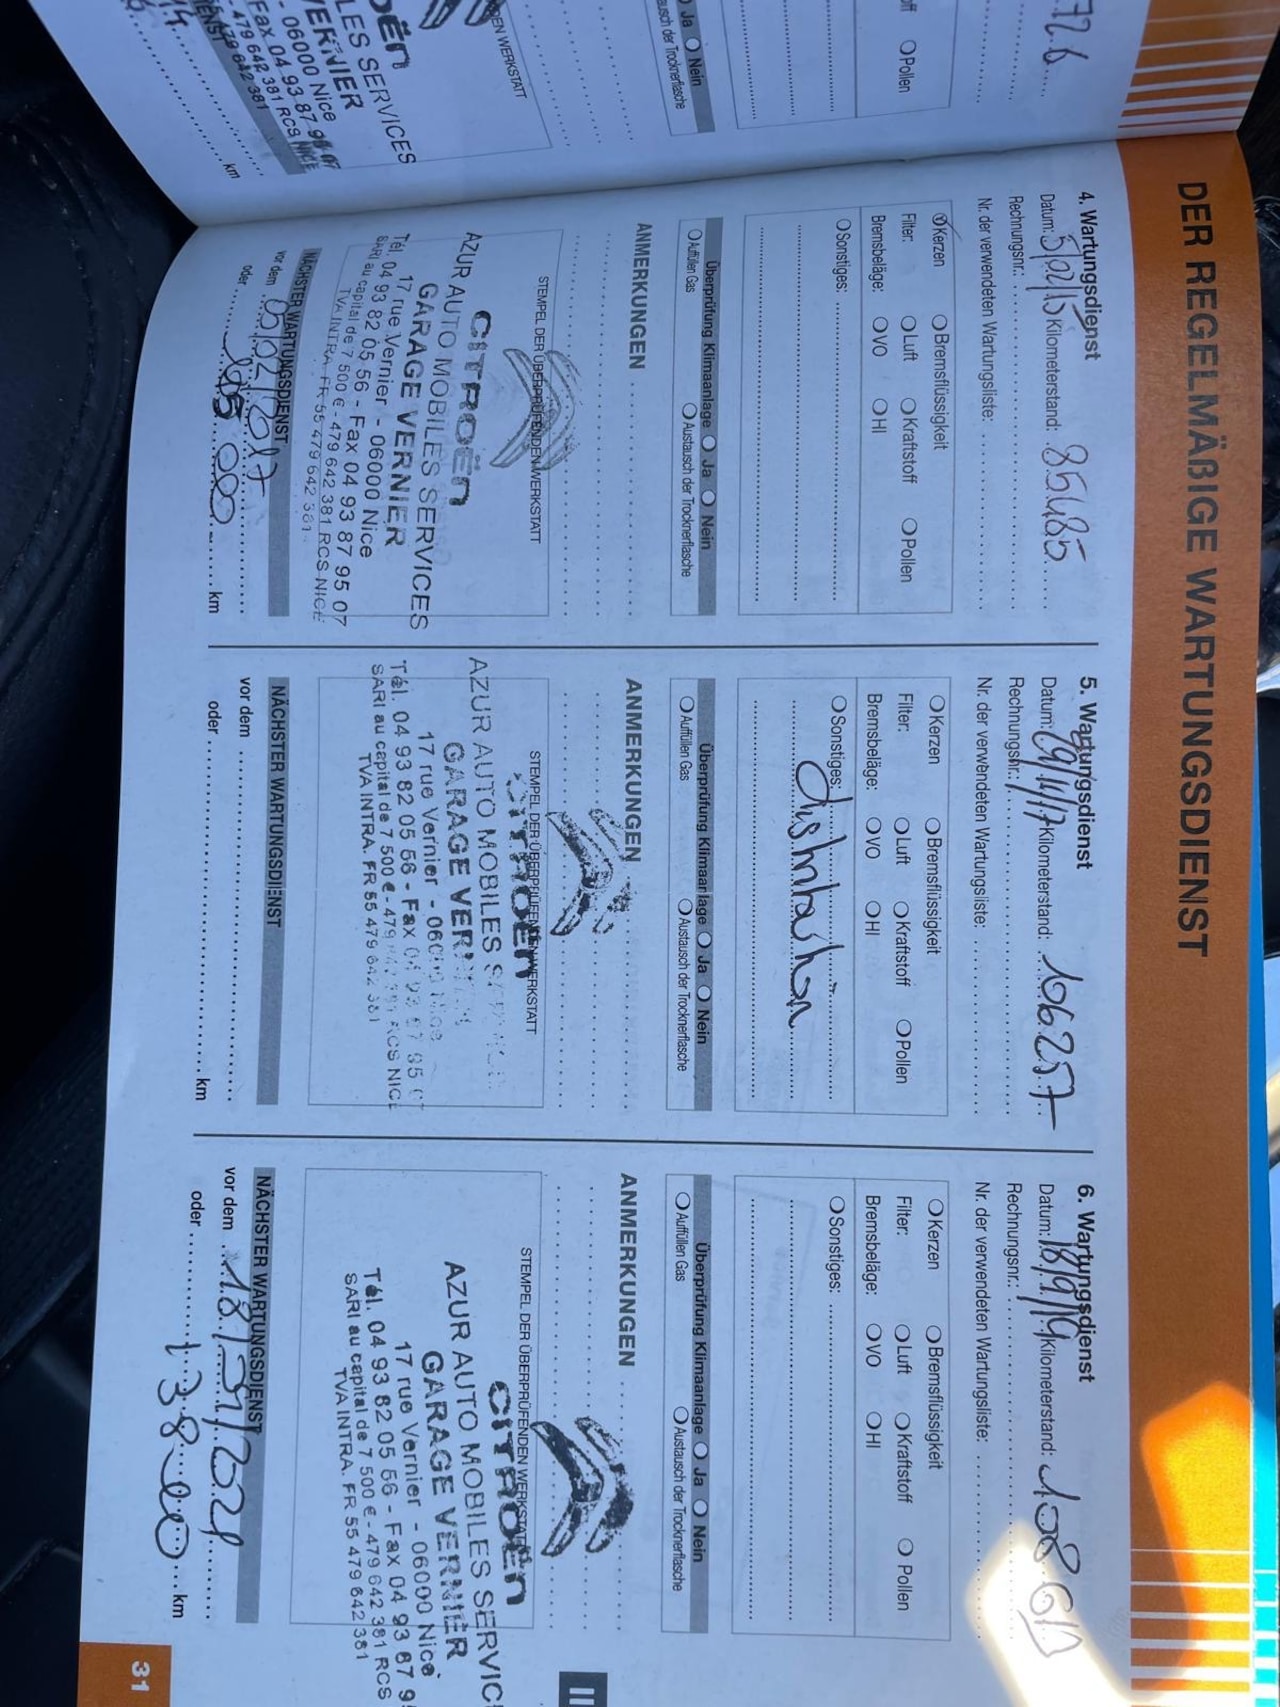 Pollen
Ja Nein
ausch der Trocknerflasche
EN WERKSTATT
LES SERVICES
VERNIER
- 06000 Nice
Fax 04 93 87 95 07
- 479 642 381 RCS NICE
479 642 381
km
DER REGELMÄßIGE WARTUNGSDIENST
4. Wartungsdienst
Datum: 5/02/15 Kilometerstand: 85485
Rechnungsnr.:
Nr. der verwendeten Wartungsliste:
Kerzen Bremsflüssigkeit
Filter: Luft Kraftstoff Pollen
Bremsbeläge: VO HI
Sonstiges:
Überprüfung Klimaanlage Ja Nein
Auffüllen Gas Austausch der Trocknerflasche
ANMERKUNGEN
STEMPEL DER ÜBERPRÜFENDEN WERKSTATT
CITROËN
AZUR AUTO MOBILES SERVICES
GARAGE VERNIER
17 rue Vernier - 06000 Nice
Tél. 04 93 82 05 56 - Fax 04 93 87 95 07
SARl au capital de 7 500 € - 479 642 381 RCS NICE
TVA INTRA. FR 55 479 642 381
NÄCHSTER WARTUNGSDIENST
vor dem 05/02/2017
oder 000 km
5. Wartungsdienst
Datum: 29/11/17 Kilometerstand: 106257
Rechnungsnr.:
Nr. der verwendeten Wartungsliste:
Kerzen Bremsflüssigkeit
Filter: Luft Kraftstoff Pollen
Bremsbeläge: VO HI
Sonstiges:
distribution
Überprüfung Klimaanlage Ja Nein
Auffüllen Gas Austausch der Trocknerflasche
ANMERKUNGEN
STEMPEL DER ÜBERPRÜFENDEN WERKSTATT
CITROËN
AZUR AUTO MOBILES
GARAGE
17 rue Vernier
Tél. 04 93 82 05 56 - Fax
SARl au capital de 7 500 € - 479 RCS NICE
TVA INTRA. FR 55 479 642 381
NÄCHSTER WARTUNGSDIENST
vor dem
oder km
6. Wartungsdienst
Datum: 18/9/19 Kilometerstand: 108
Rechnungsnr.:
Nr. der verwendeten Wartungsliste:
Kerzen Bremsflüssigkeit
Filter: Luft Kraftstoff Pollen
Bremsbeläge: VO HI
Sonstiges:
Überprüfung Klimaanlage Ja Nein
Auffüllen Gas Austausch der Trocknerflasche
ANMERKUNGEN
STEMPEL DER ÜBERPRÜFENDEN WERKSTATT
CITROËN
AZUR AUTO MOBILES SERVIC
GARAGE VERNIER
17 rue Vernier - 06000 Nice
Tél. 04 93 82 05 56 - Fax 04 93 87 9
SARl au capital de 7 500 € - 479 642 381 RCS
TVA INTRA. FR 55 479 642 381
NÄCHSTER WARTUNGSDIENST
vor dem
oder 138 000 km
II
31